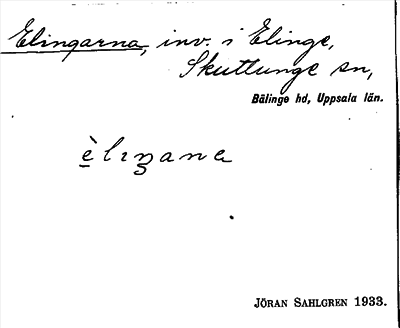 Elingarna, inv. i Elinge,
Skuttunge sn,
Bälinge hd, Uppsala län.
è̱lıŋana
JÖRAN SAHLGREN 1933.